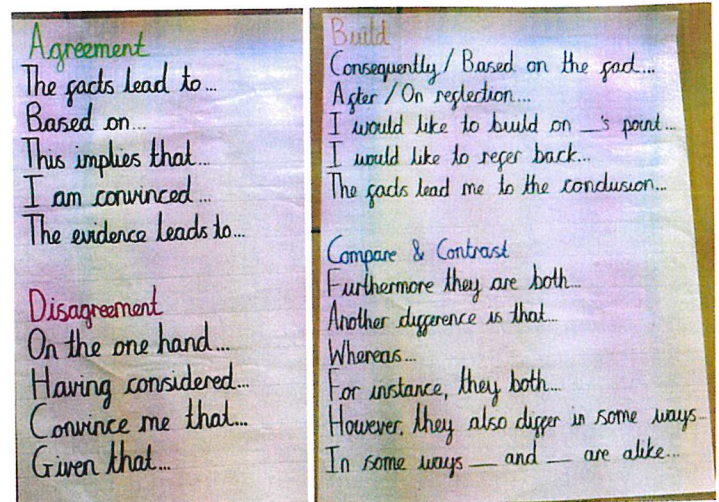 Agreement
The facts lead to...
Based on...
This implies that...
I am convinced...
The evidence leads to...
Disagreement
On the one hand...
Having considered...
Convince me that...
Given that...
Build
Consequently / Based on the fact...
After / On reflection...
I would like to build on __'s point...
I would like to refer back...
The facts lead me to the conclusion...
Compare & Contrast
Furthermore they are both...
Another difference is that...
Whereas...
For instance, they both...
However, they also differ in some ways...
In some ways __ and __ are alike...